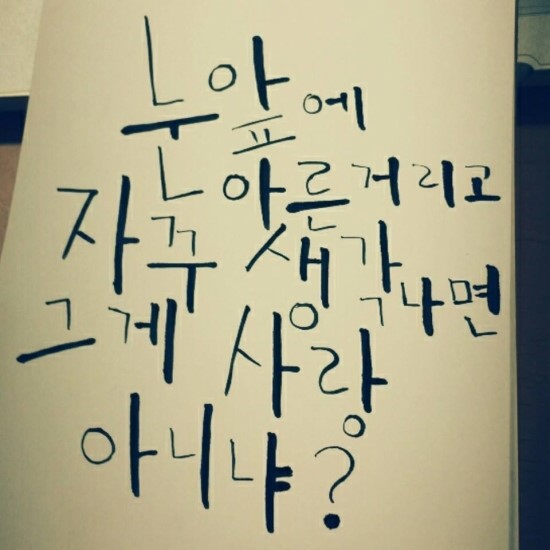 눈앞에
아른거리고
자꾸 생각나면
그게 사랑
아니냐?